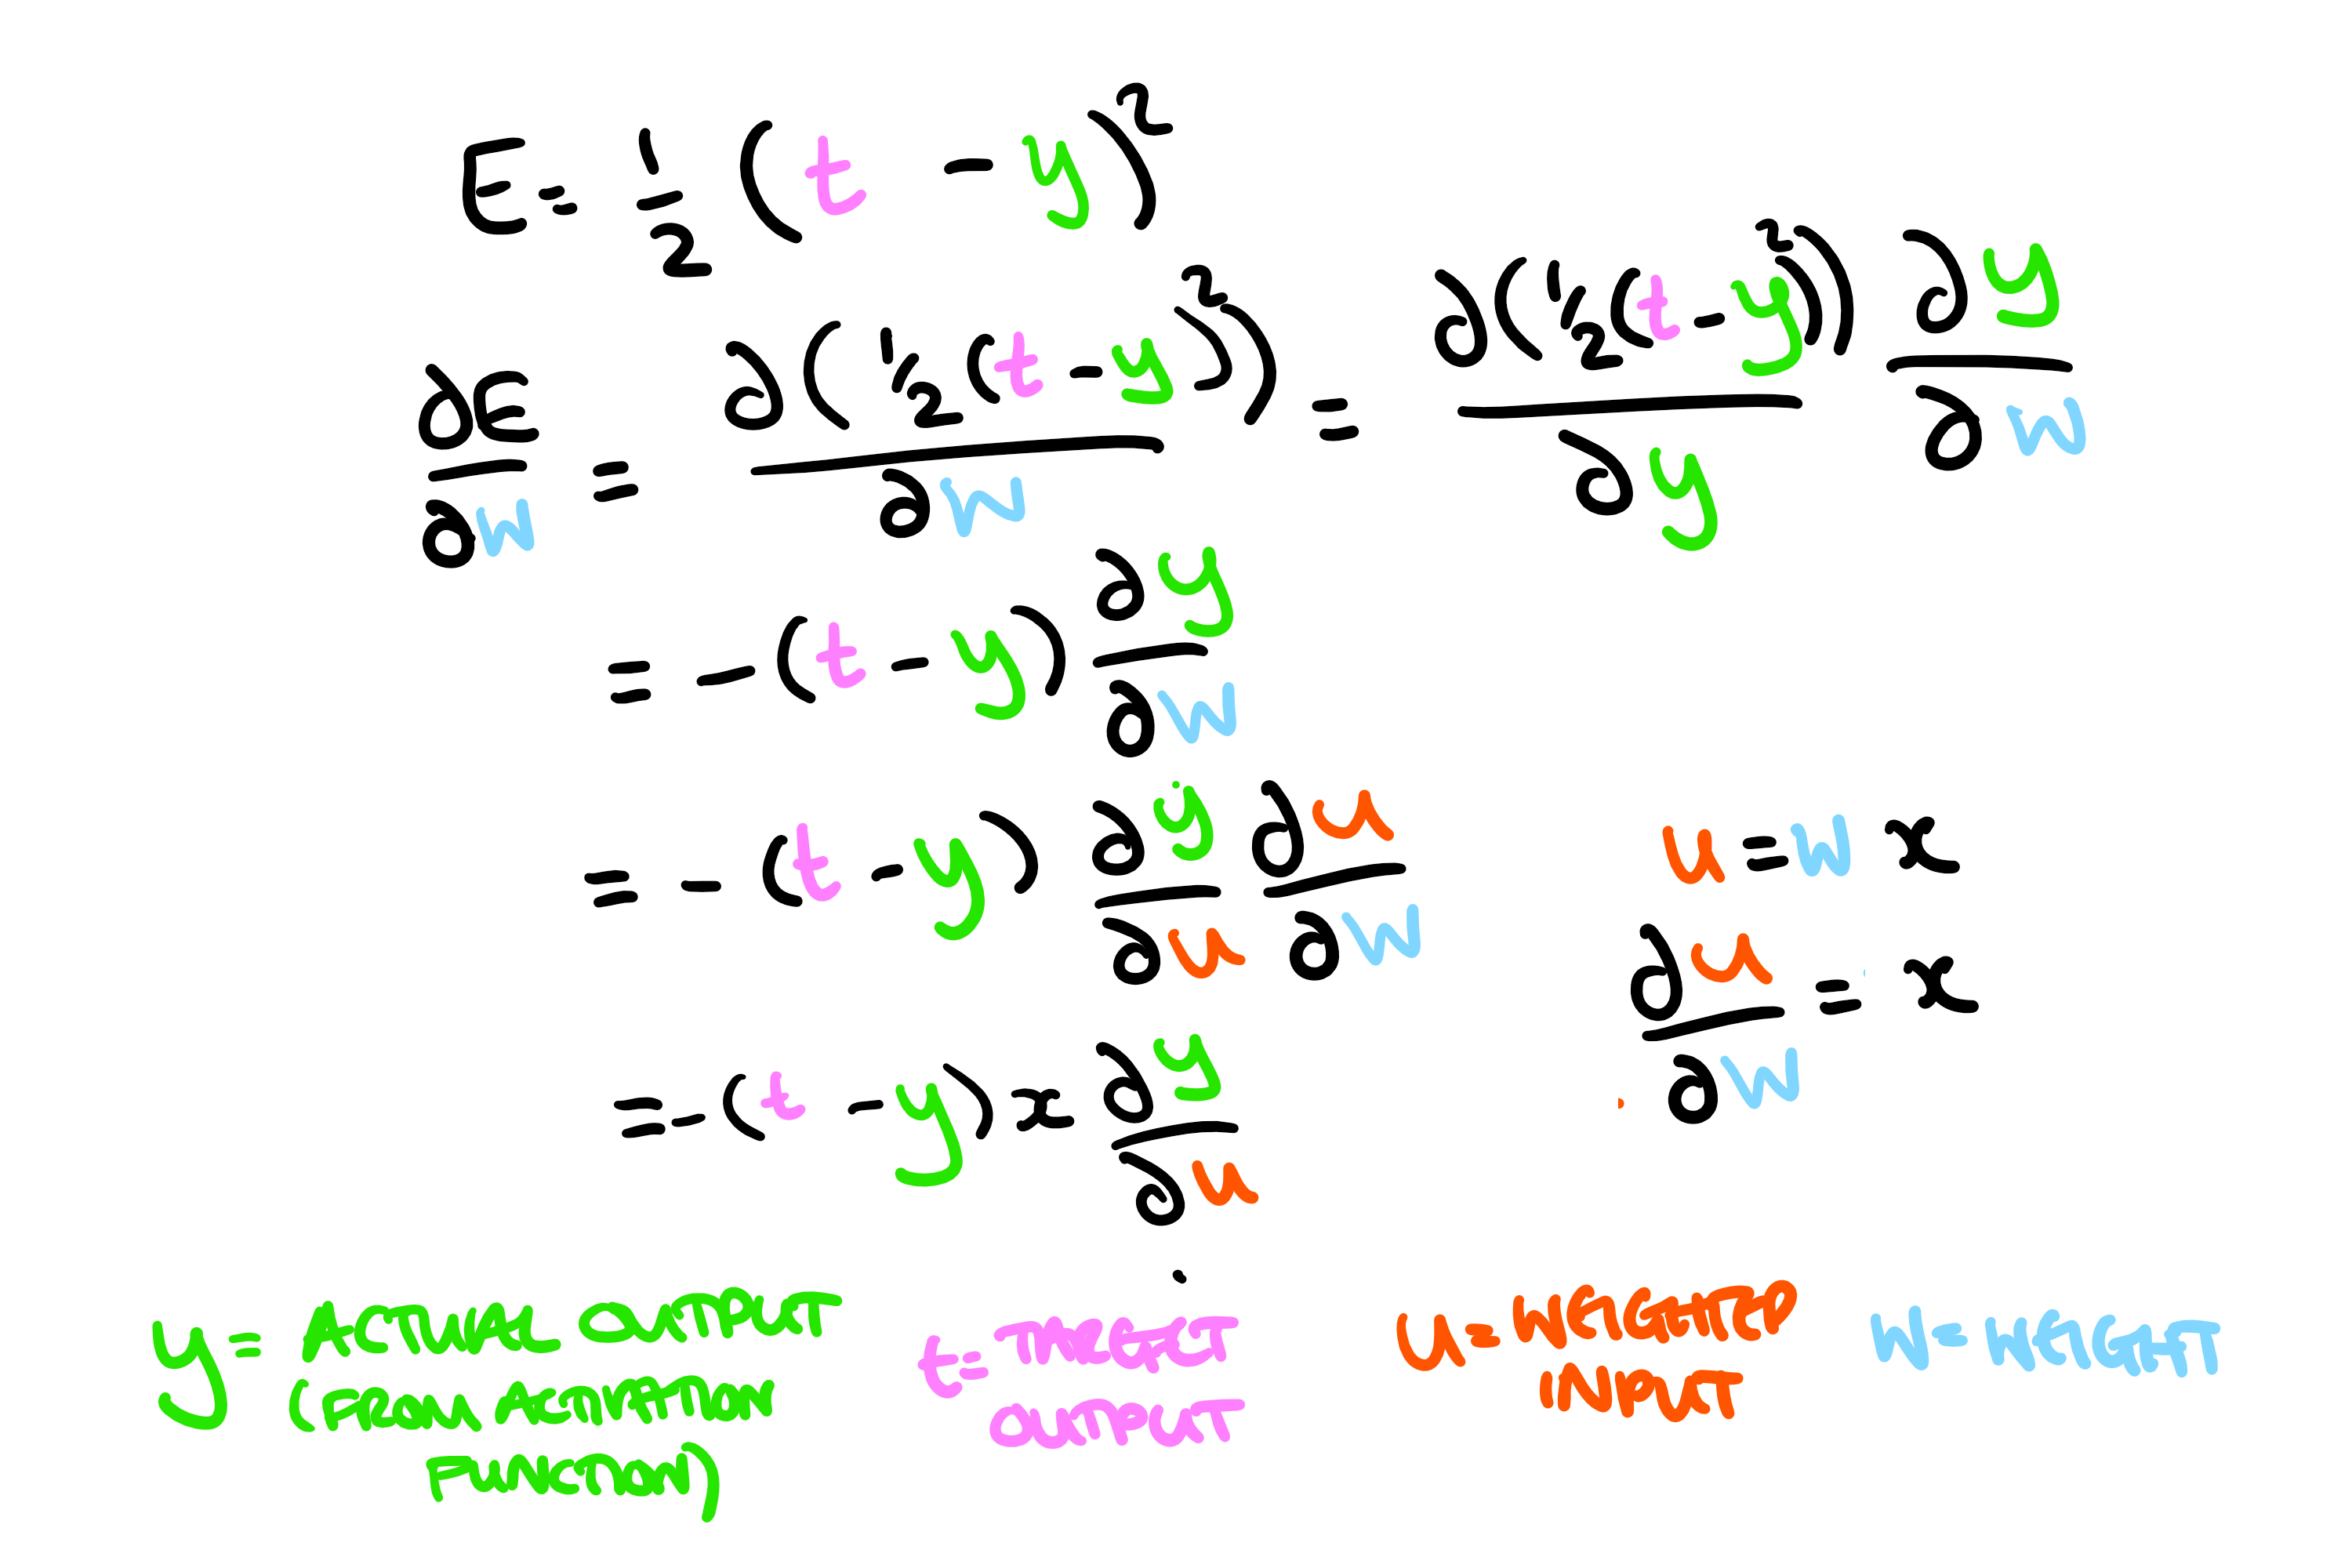 E = ½ (t - y)²
∂E/∂w = ∂(½(t - y)²)/∂w = ∂(½(t - y)²)/∂y ∂y/∂w
= -(t - y) ∂y/∂w
= -(t - y) ∂y/∂u ∂u/∂w
u = w x
∂u/∂w = x
= -(t - y) x ∂y/∂u
y = ACTUAL OUTPUT
(FROM ACTIVATION
FUNCTION)
t = TARGET
OUTPUT
u = WEIGHTED
INPUT
W = WEIGHT